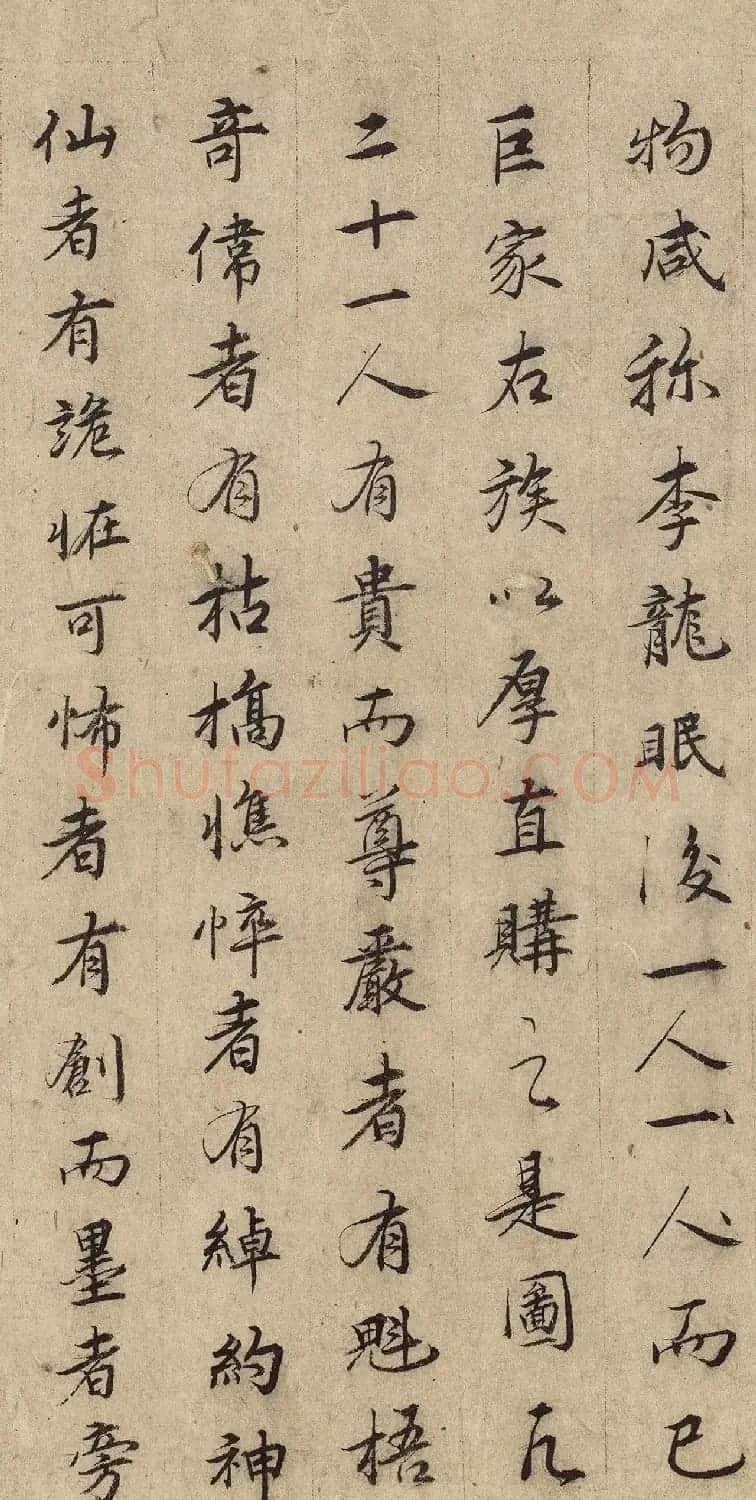 物咸称李龍眠後一人一人而已
巨家右族以厚直購之是圖凡
二十一人有貴而尊嚴者有魁梧
奇偉者有枯槁憔悴者有綽約神
仙者有詭恠可怖者有創而墨者旁
Shufaziliao.COM